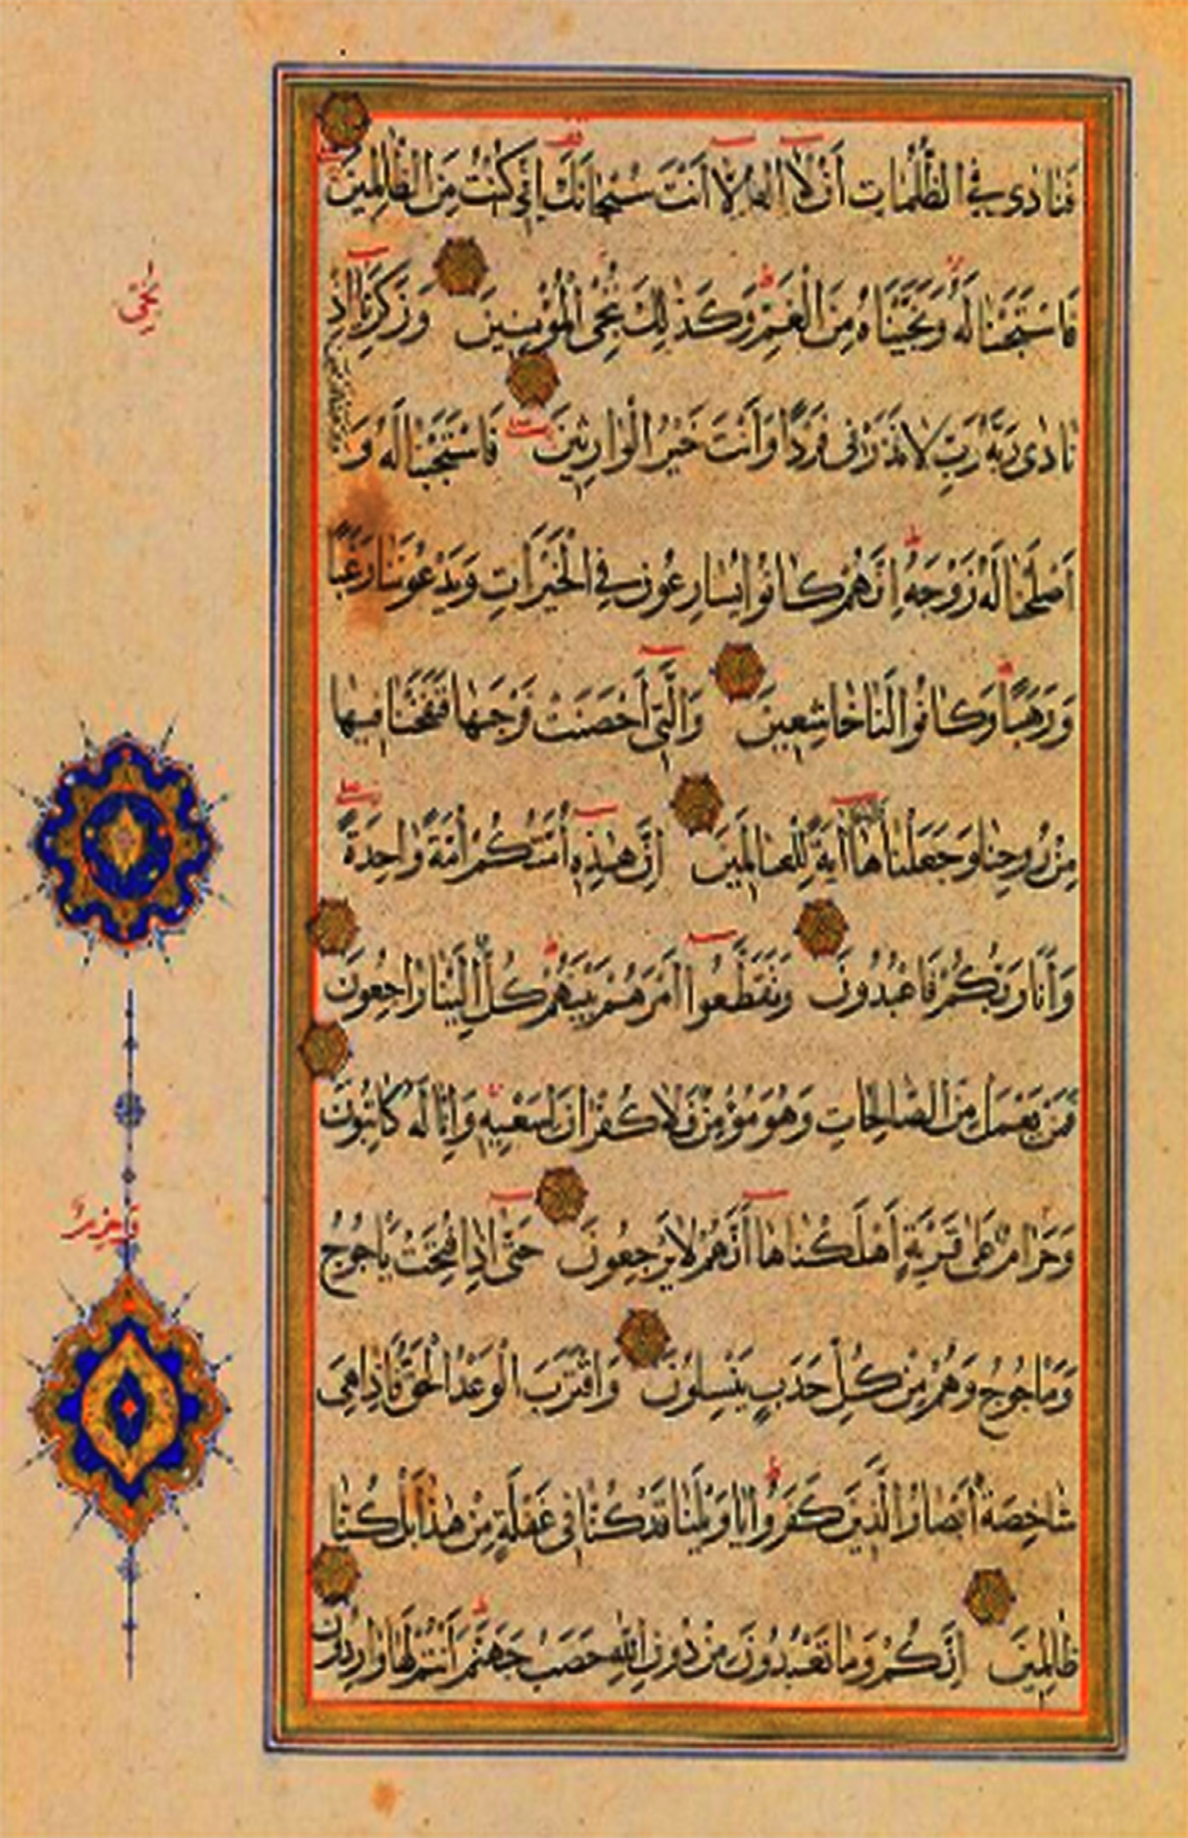 فَنَادَى فِي الظُّلُمَاتِ أَنْ لَا إِلَهَ إِلَّا أَنْتَ سُبْحَانَكَ إِنِّي كُنْتُ مِنَ الظَّالِمِينَ
فَاسْتَجَبْنَا لَهُ وَنَجَّيْنَاهُ مِنَ الْغَمِّ وَكَذَلِكَ نُنْجِي الْمُؤْمِنِينَ وَزَكَرِيَّا إِذْ
نَادَى رَبَّهُ رَبِّ لَا تَذَرْنِي فَرْدًا وَأَنْتَ خَيْرُ الْوَارِثِينَ فَاسْتَجَبْنَا لَهُ وَ
أَصْلَحْنَا لَهُ زَوْجَهُ إِنَّهُمْ كَانُوا يُسَارِعُونَ فِي الْخَيْرَاتِ وَيَدْعُونَنَا رَغَبًا
وَرَهَبًا وَكَانُوا لَنَا خَاشِعِينَ وَالَّتِي أَحْصَنَتْ فَرْجَهَا فَنَفَخْنَا فِيهَا
مِنْ رُوحِنَا وَجَعَلْنَاهَا آيَةً لِلْعَالَمِينَ إِنَّ هَذِهِ أُمَّتُكُمْ أُمَّةً وَاحِدَةً
وَأَنَا رَبُّكُمْ فَاعْبُدُونِ وَتَقَطَّعُوا أَمْرَهُمْ بَيْنَهُمْ كُلٌّ إِلَيْنَا رَاجِعُونَ
فَمَنْ يَعْمَلْ مِنَ الصَّالِحَاتِ وَهُوَ مُؤْمِنٌ فَلَا كُفْرَانَ لِسَعْيِهِ وَإِنَّا لَهُ كَاتِبُونَ
وَحَرَامٌ عَلَى قَرْيَةٍ أَهْلَكْنَاهَا أَنَّهُمْ لَا يَرْجِعُونَ حَتَّى إِذَا فُتِحَتْ يَاجُوجُ
وَمَاجُوجُ وَهُمْ مِنْ كُلِّ حَدَبٍ يَنْسِلُونَ وَاقْتَرَبَ الْوَعْدُ الْحَقُّ فَإِذَا هِيَ
شَاخِصَةٌ أَبْصَارُ الَّذِينَ كَفَرُوا يَا وَيْلَنَا قَدْ كُنَّا فِي غَفْلَةٍ مِنْ هَذَا بَلْ كُنَّا
ظَالِمِينَ إِنَّكُمْ وَمَا تَعْبُدُونَ مِنْ دُونِ اللَّهِ حَصَبُ جَهَنَّمَ أَنْتُمْ لَهَا وَارِدُونَ